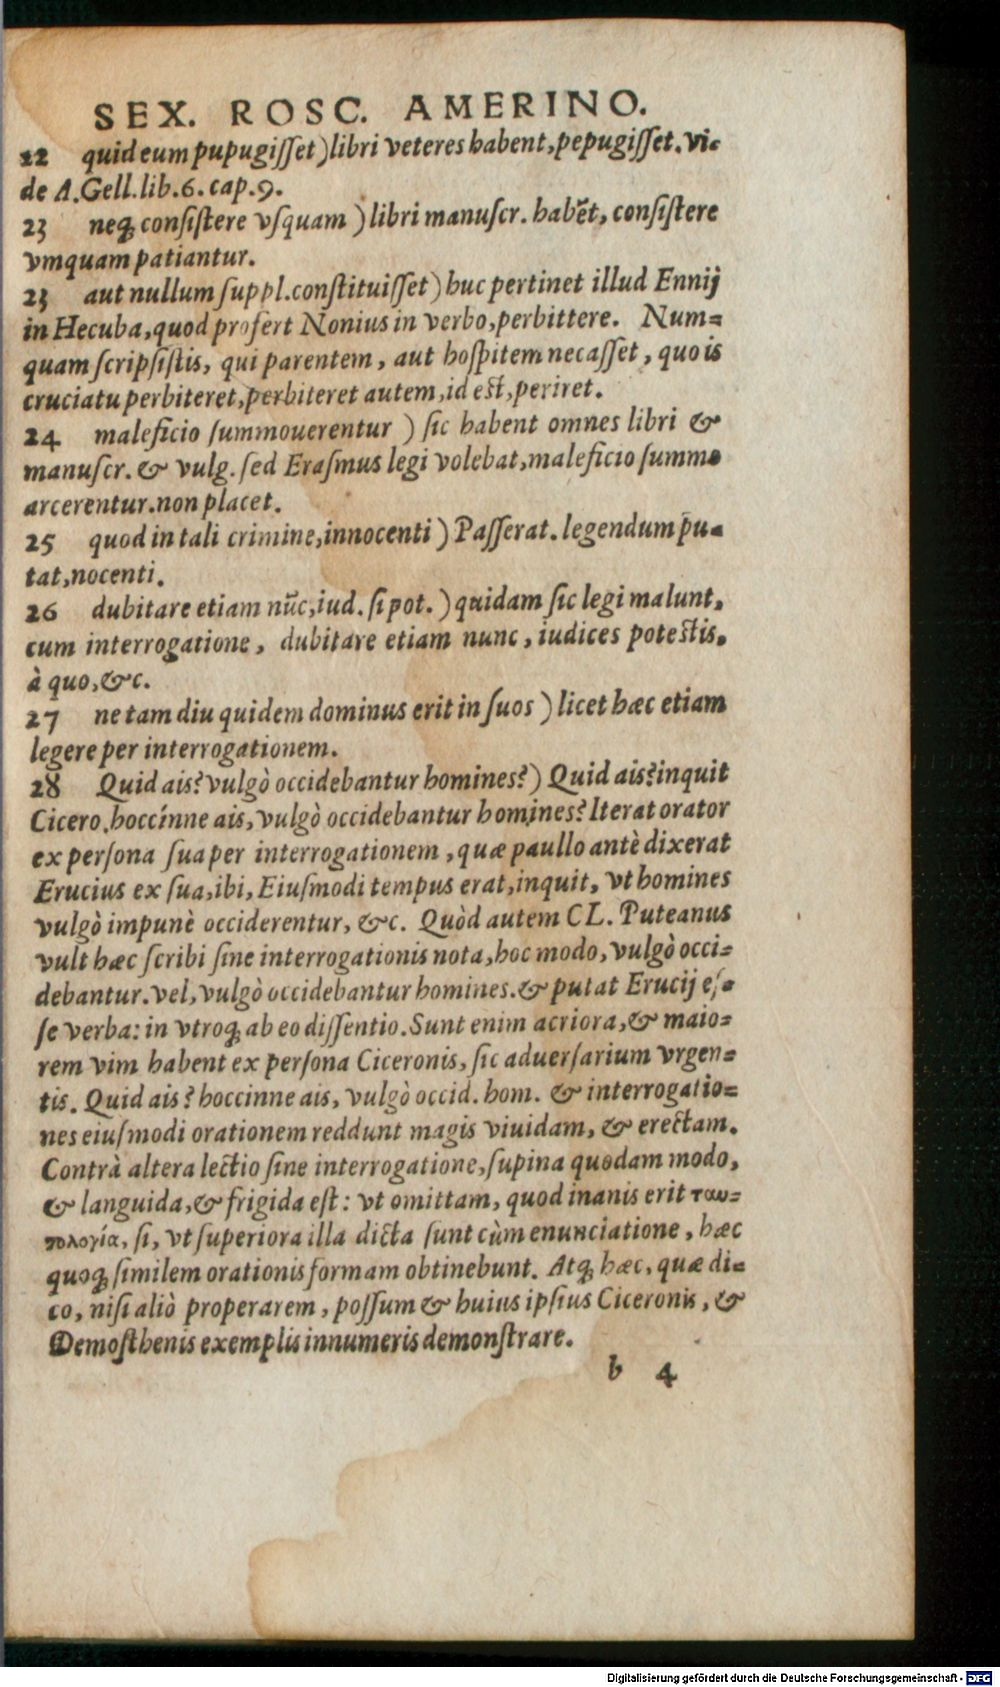 SEX. ROSC. AMERINO.
22 quid eum pupugiſſet) libri veteres habent, pepugiſſet. vi-
de A. Gell. lib. 6. cap. 9.
23 neq; conſiſtere vſquam) libri manuſcr. habẽt, conſiſtere
vmquam patiantur.
23 aut nullum ſuppl. conſtituiſſet) huc pertinet illud Ennij
in Hecuba, quod profert Nonius in verbo, perbittere. Num-
quam ſcripſiſtis, qui parentem, aut hoſpitem necaſſet, quo is
cruciatu perbiteret, perbiteret autem, id eſt, periret.
24 maleficio ſummouerentur) ſic habent omnes libri &
manuſcr. & vulg. ſed Eraſmus legi volebat, maleficio ſummo
arcerentur. non placet.
25 quod in tali crimine, innocenti) Paſſerat. legendum pu-
tat, nocenti.
26 dubitare etiam nũc, iud. ſi pot.) quidam ſic legi malunt,
cum interrogatione, dubitare etiam nunc, iudices poteſtis,
à quo, &c.
27 ne tam diu quidem dominus erit in ſuos) licet hæc etiam
legere per interrogationem.
28 Quid ais? vulgò occidebantur homines?) Quid ais? inquit
Cicero. hoccínne ais, vulgò occidebantur homines? Iterat orator
ex perſona ſua per interrogationem, quæ paullo antè dixerat
Erucius ex ſua, ibi, Eiuſmodi tempus erat, inquit, vt homines
vulgò impunè occiderentur, &c. Quòd autem CL. Puteanus
vult hæc ſcribi ſine interrogationis nota, hoc modo, vulgò occi-
debantur. vel, vulgò occidebantur homines. & putat Erucij eſ-
ſe verba: in vtroq; ab eo diſſentio. Sunt enim acriora, & maio-
rem vim habent ex perſona Ciceronis, ſic aduerſarium vrgen-
tis. Quid ais? hoccinne ais, vulgò occid. hom. & interrogatio-
nes eiuſmodi orationem reddunt magis viuidam, & erectam.
Contrà altera lectio ſine interrogatione, ſupina quodam modo,
& languida, & frigida eſt: vt omittam, quod inanis erit ταυ-
τολογία, ſi, vt ſuperiora illa dicta ſunt cùm enunciatione, hæc
quoq; ſimilem orationis formam obtinebunt. Atq; hæc, quæ di-
co, niſi aliò properarem, poſſum & huius ipſius Ciceronis, &
Demoſthenis exemplis innumeris demonſtrare.
b 4
Digitalisierung gefördert durch die Deutsche Forschungsgemeinschaft - DFG